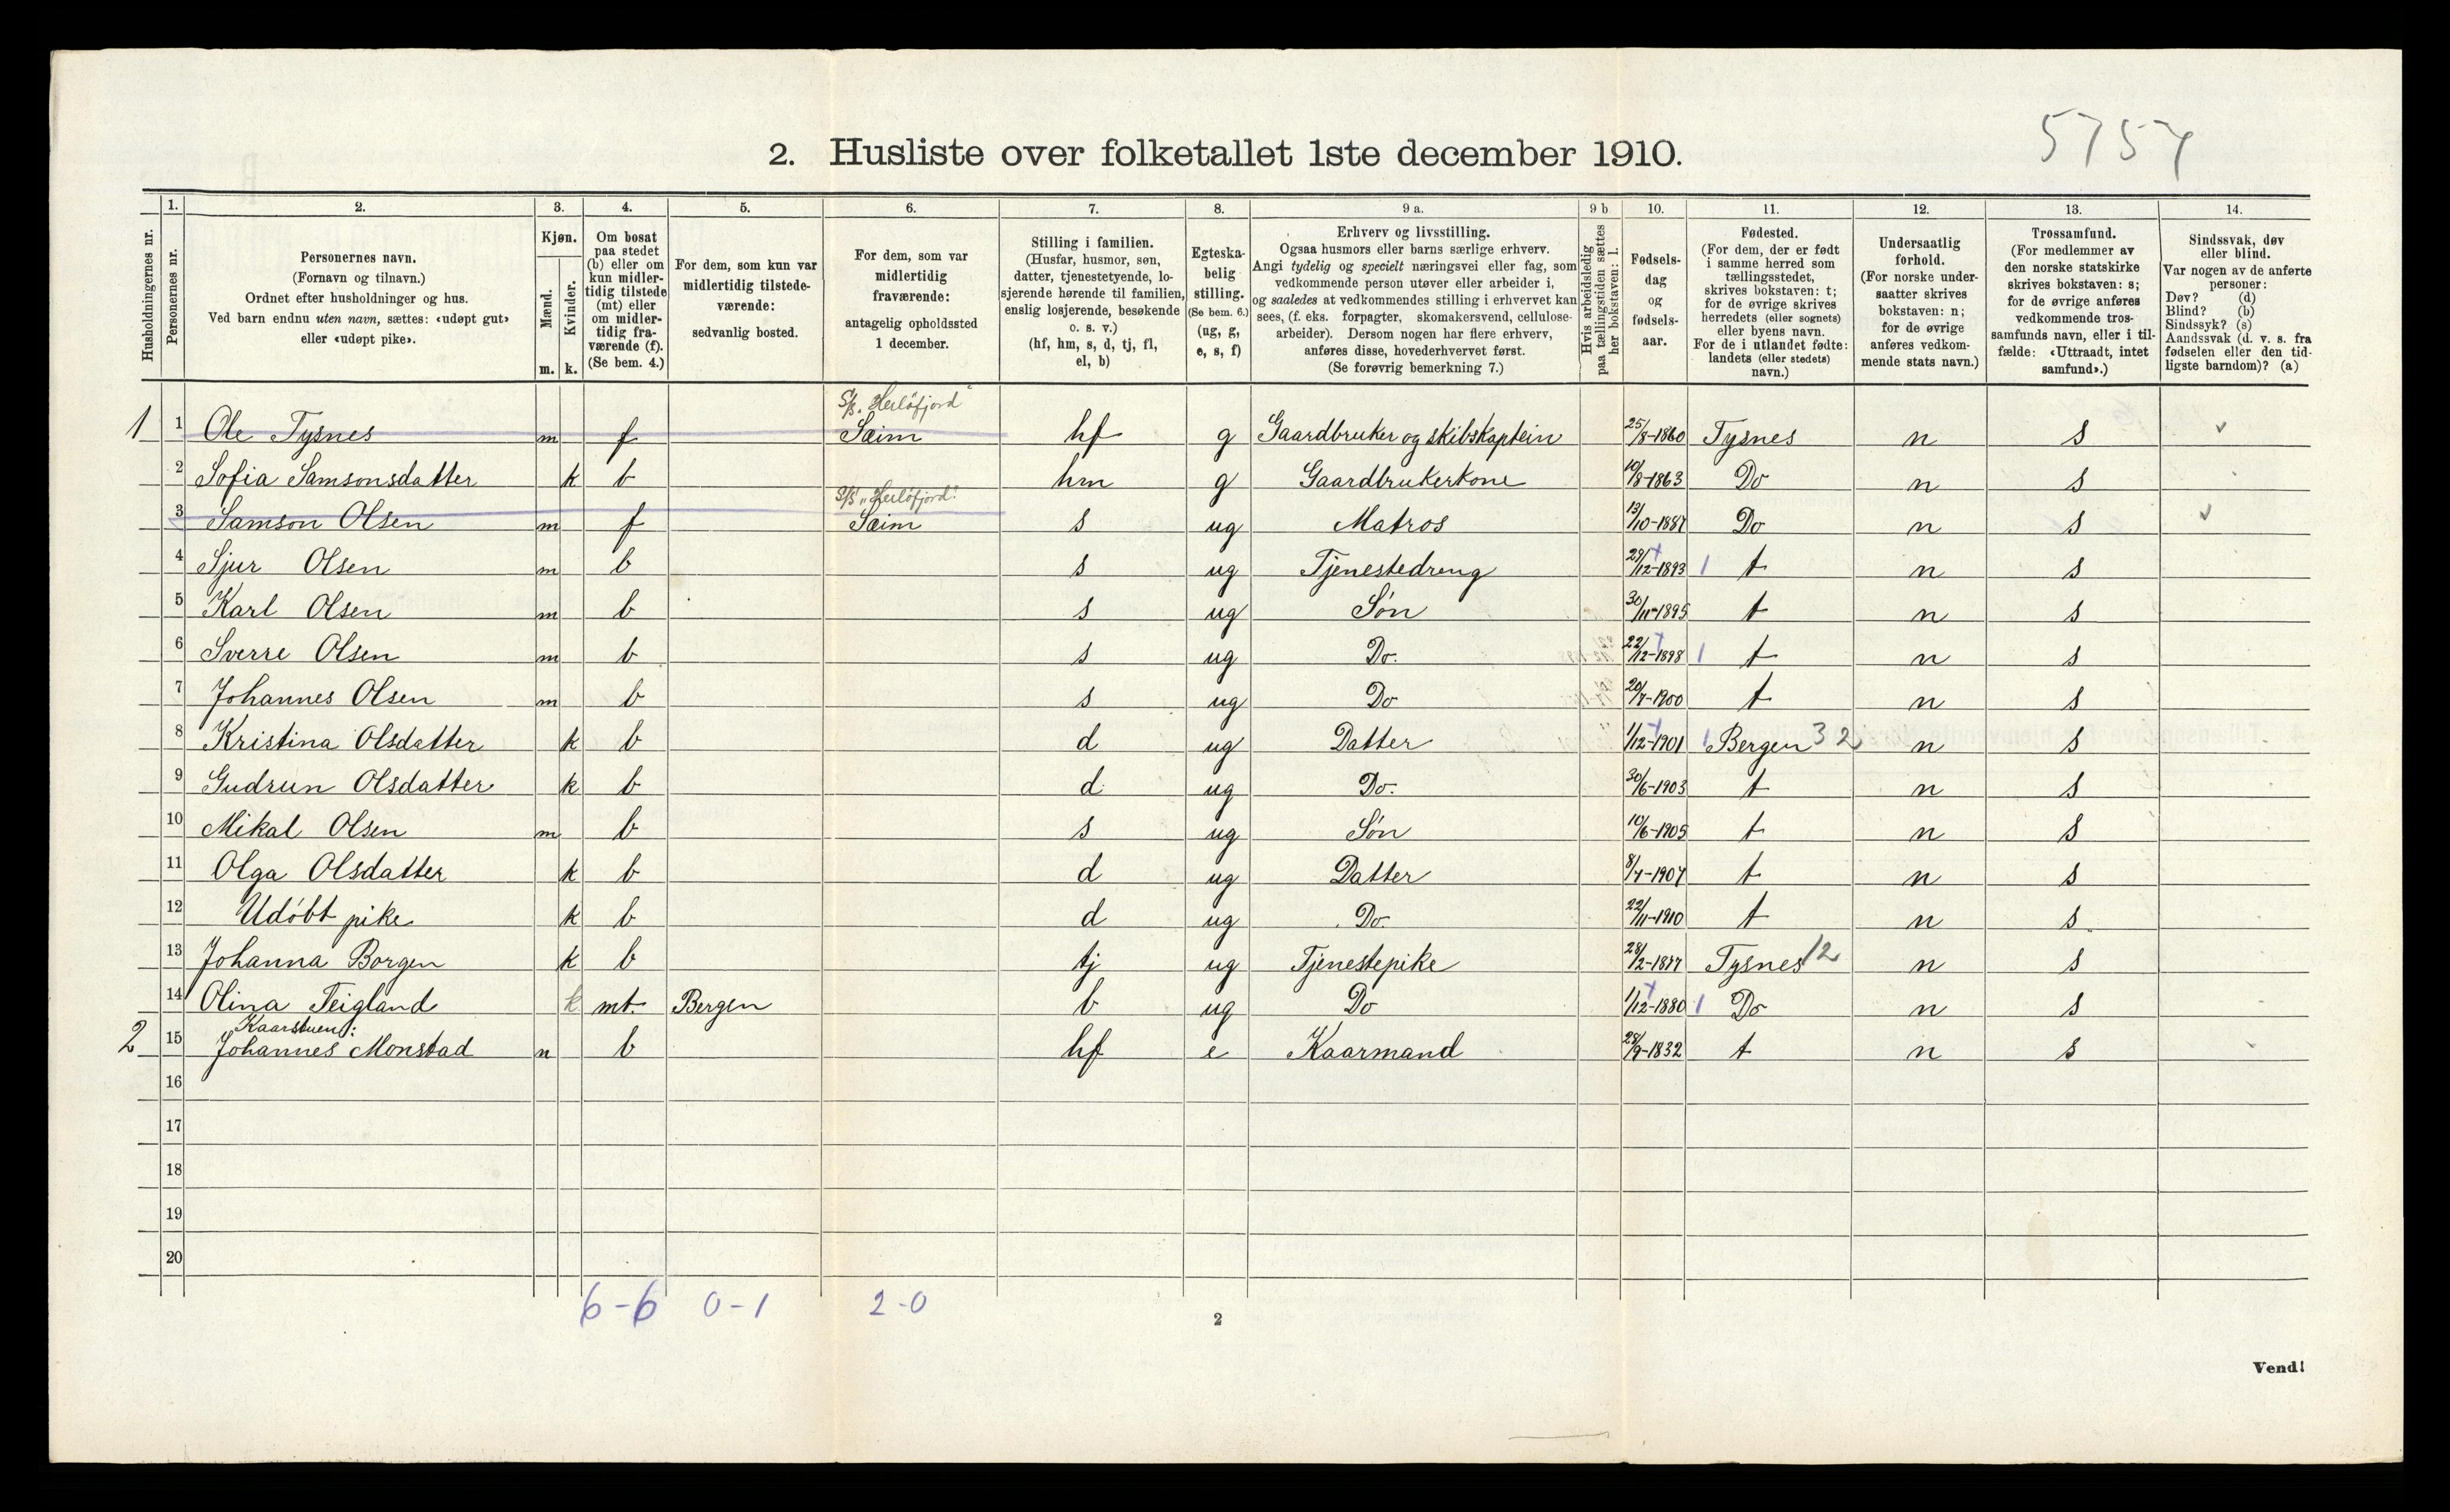 5754
2. Husliste over folketallet 1ste december 1910.
Husholdningernes nr.
1. Personernes nr.
2. Personernes navn. (Fornavn og tilnavn.) Ordnet efter husholdninger og hus. Ved barn endnu uten navn, sættes: «udøpt gut» eller «udøpt pike».
3. Kjøn. Mænd. m. Kvinder. k.
4. Om bosat paa stedet (b) eller om kun midlertidig tilstede (mt) eller om midlertidig fraværende (f). (Se bem. 4.)
5. For dem, som kun var midlertidig tilstedeværende: sedvanlig bosted.
6. For dem, som var midlertidig fraværende: antagelig opholdssted 1 december.
7. Stilling i familien. (Husfar, husmor, søn, datter, tjenestetyende, losjerende hørende til familien, enslig losjerende, besøkende o. s. v.) (hf, hm, s, d, tj, fl, el, b)
8. Egteskabelig stilling. (Se bem. 6.) (ug, g, e, s, f)
9 a. Erhverv og livsstilling. Ogsaa husmors eller barns særlige erhverv. Angi tydelig og specielt næringsvei eller fag, som vedkommende person utøver eller arbeider i, og saaledes at vedkommendes stilling i erhvervet kan sees, (f. eks. forpagter, skomakersvend, cellulosearbeider). Dersom nogen har flere erhverv, anføres disse, hovederhvervet først. (Se forøvrig bemerkning 7.)
9 b Hvis arbeidsledig paa tællingstiden sættes her bokstaven: l.
10. Fødselsdag og fødselsaar.
11. Fødested. (For dem, der er født i samme herred som tællingsstedet, skrives bokstaven: t; for de øvrige skrives herredets (eller sognets) eller byens navn. For de i utlandet fødte: landets (eller stedets) navn.)
12. Undersaatlig forhold. (For norske undersaatter skrives bokstaven: n; for de øvrige anføres vedkommende stats navn.)
13. Trossamfund. (For medlemmer av den norske statskirke skrives bokstaven: s; for de øvrige anføres vedkommende trossamfunds navn, eller i tilfælde: «Uttraadt, intet samfund».)
14. Sindssvak, døv eller blind. Var nogen av de anførte personer: Døv? (d) Blind? (b) Sindssyk? (s) Aandssvak (d. v. s. fra fødselen eller den tidligste barndom)? (a)
S/s. "Herlöfjord"
1 1 Ole Tysnes m f Sæim hf g Gaardbruker og skibskaptein 25/8-1860 Tysnes n s
2 Sofia Samsonsdatter k b hm g Gaardbrukerkone 10/8-1863 Do n s
S/s "Herlöfjord"
3 Samson Olsen m f Sæim s ug Matros 13/10-1887 Do n s
4 Sjur Olsen m b s ug Tjenestedreng 29/12-1893 1 t n s
5 Karl Olsen m b s ug Søn 30/11-1895 t n s
6 Sverre Olsen m b s ug Do. 22/12-1898 1 t n s
7 Johannes Olsen m b s ug Do 20/7-1900 t n s
8 Kristina Olsdatter k b d ug Datter 1/12-1901 1 Bergen 32 n s
9 Gudrun Olsdatter k b d ug Do. 30/6-1903 t n s
10 Mikal Olsen m b s ug Søn 10/6-1905 t n s
11 Olga Olsdatter k b d ug Datter 8/7-1907 t n s
12 Udöbt pike k b d ug Do. 22/11-1910 t n s
13 Johanna Borgen k b tj ug Tjenestepike 28/2-1877 Tysnes 12 n s
14 Olina Teigland k mt. Bergen b ug Do 1/12-1880 1 Do n s
Kaarstuen:
2 15 Johannes Monstad m b hf e Kaarmand 28/9-1832 t n s
16
17
18
19
20
6-6 0-1 2-0
2
Vend!